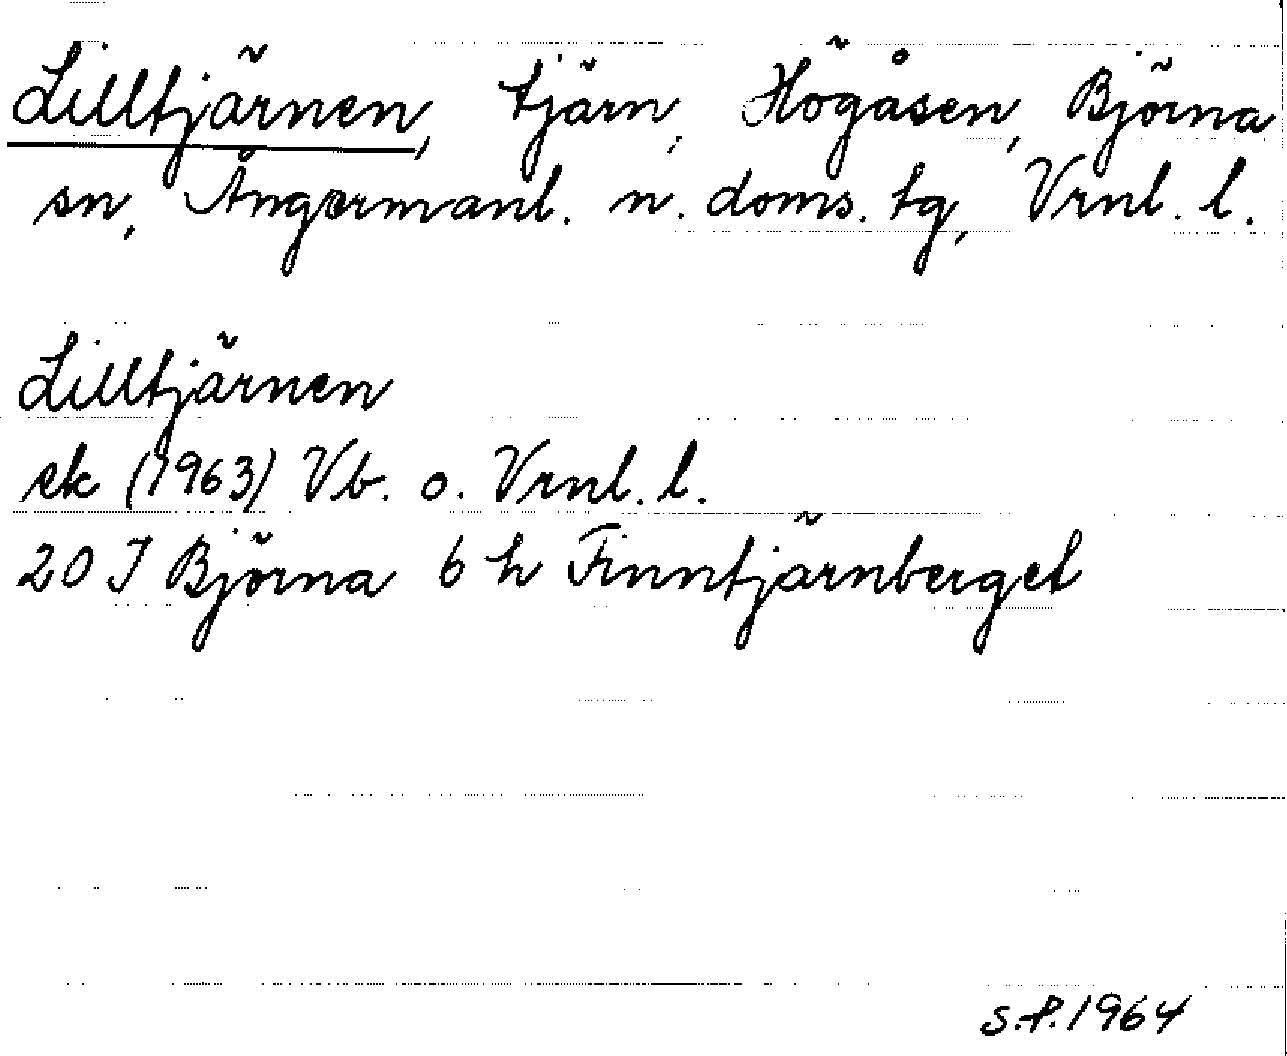 Lilltjärnen, tjärn, Högåsen, Björna
sn, Ångermanl. n. doms. tg, Vrnl. l.
Lilltjärnen
ek (1963) Vb. o. Vrnl. l.
20 J Björna 6 h Finntjärnberget
S.P. 1964